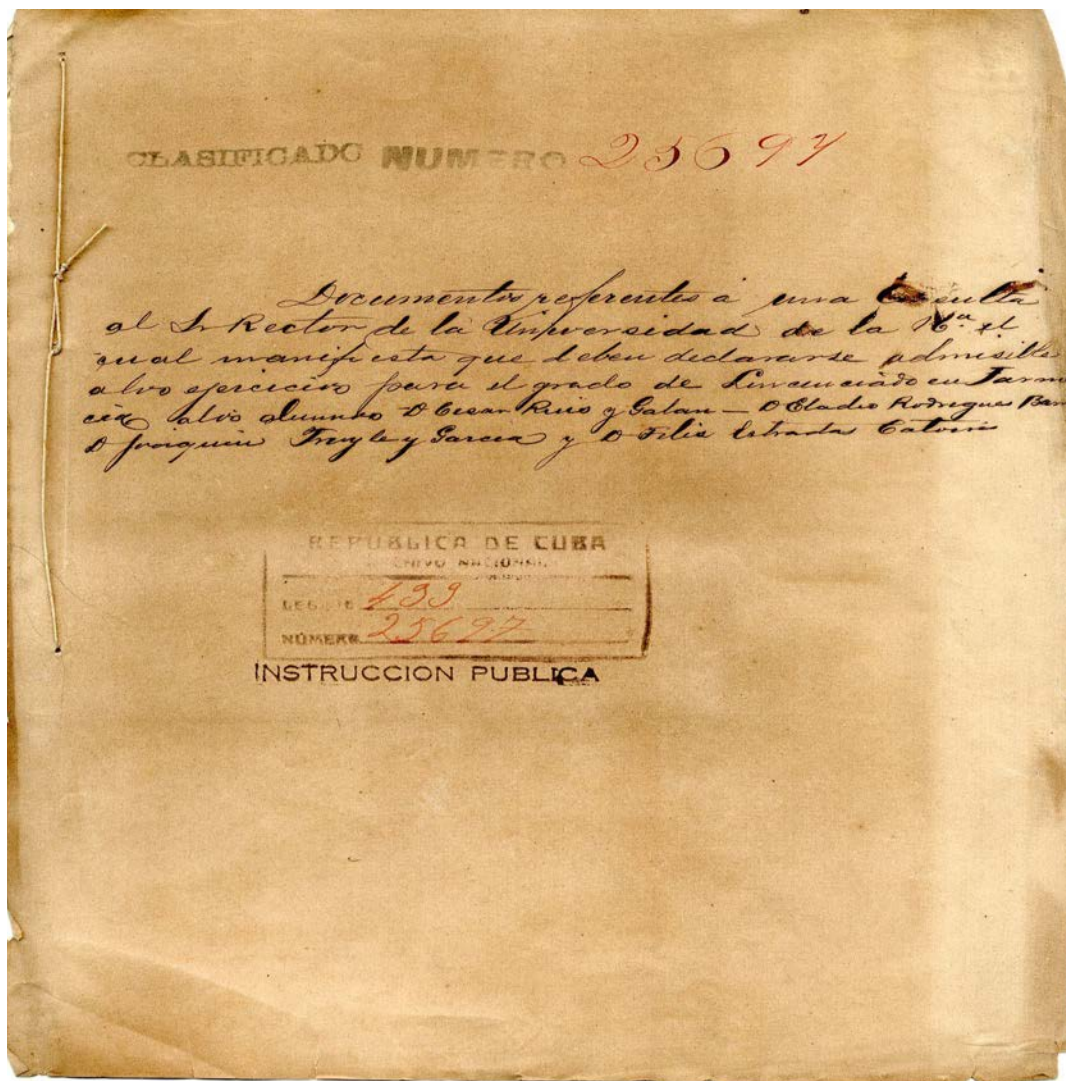 CLASIFICADO NUMERO 25697
Documentos referentes á una Consulta
al Sr Rector de la Universidad de la Hª. el
cual manifiesta que deben declararse admisible
alos ejercicios para el grado de Lincenciado en Farma
cia alos alumnos D Cesar Ruis y Galan — D Eladio Rodrigues
D Joaquin y Garcia y D Felis Estrada
REPUBLICA DE CUBA
ARCHIVO NACIONAL
LEGAJO 499
NÚMERO 25697
INSTRUCCION PUBLICA